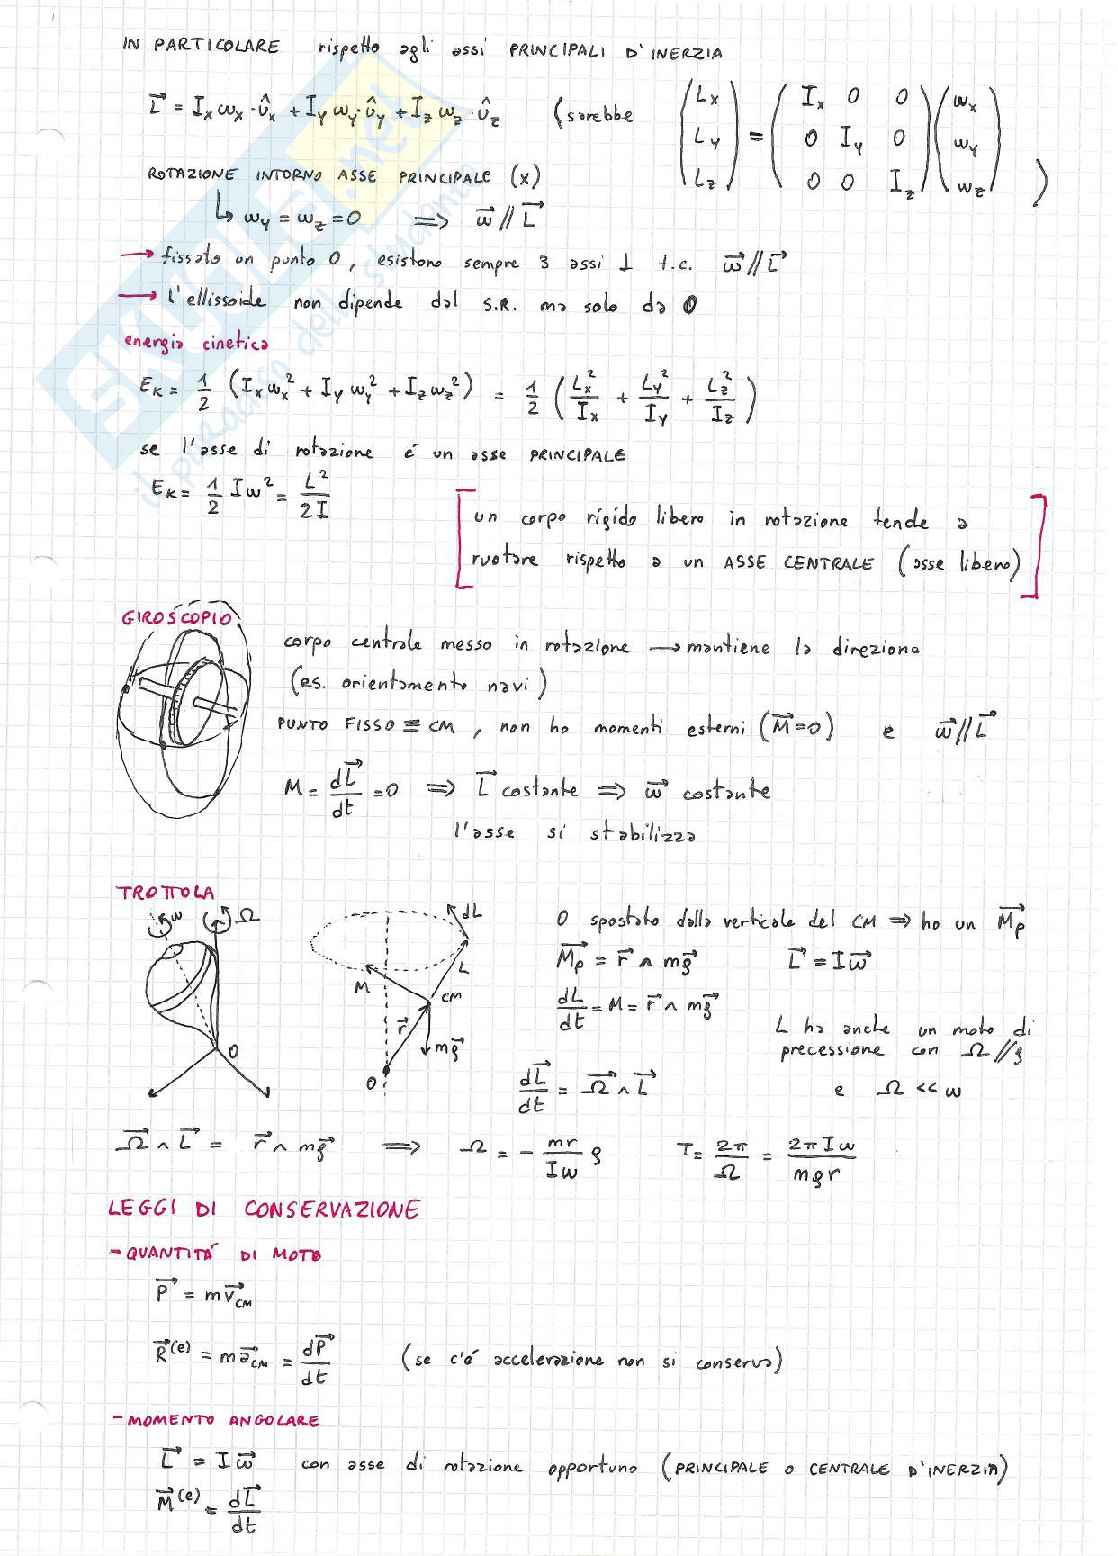 IN PARTICOLARE rispetto agli assi PRINCIPALI D'INERZIA
L⃗ = Ix ωx · ûx + Iy ωy · ûy + Iz ωz · ûz (sarebbe (Lx Ly Lz) = (Ix 0 0 / 0 Iy 0 / 0 0 Iz) (ωx ωy ωz))
ROTAZIONE INTORNO ASSE PRINCIPALE (x)
↳ ωy = ωz = 0 ⟹ ω⃗ // L⃗
→ fissato un punto O, esistono sempre 3 assi ⊥ t.c. ω⃗ // L⃗
→ l'ellissoide non dipende dal S.R. ma solo da O
energia cinetica
EK = 1/2 (Ix ωx² + Iy ωy² + Iz ωz²) = 1/2 (Lx²/Ix + Ly²/Iy + Lz²/Iz)
se l'asse di rotazione é un asse PRINCIPALE
EK = 1/2 I ω² = L²/2I
[un corpo rigido libero in rotazione tende a
ruotare rispetto a un ASSE CENTRALE (asse libero)]
GIROSCOPIO
corpo centrale messo in rotazione → mantiene la direzione
(es. orientamento navi)
PUNTO FISSO ≡ CM, non ho momenti esterni (M⃗=0) e ω⃗ // L⃗
M = dL⃗/dt = 0 ⟹ L⃗ costante ⟹ ω⃗ costante
l'asse si stabilizza
TROTTOLA
ω Ω
O
dL
M
L
CM
r⃗
mg⃗
O
O spostato dalla verticale del CM ⟹ ho un M⃗p
M⃗p = r⃗ ∧ mg⃗ L⃗ = Iω⃗
dL/dt = M = r⃗ ∧ mg⃗
L ha anche un moto di
precessione con Ω // g
e Ω << ω
dL⃗/dt = Ω⃗ ∧ L⃗
Ω⃗ ∧ L⃗ = r⃗ ∧ mg⃗ ⟹ Ω = - mr/Iω g T = 2π/Ω = 2πIω/mgr
LEGGI DI CONSERVAZIONE
- QUANTITÁ DI MOTO
P⃗ = mv⃗CM
R⃗(e) = ma⃗CM = dP⃗/dt (se c'é accelerazione non si conserva)
- MOMENTO ANGOLARE
L⃗ = Iω⃗ con asse di rotazione opportuno (PRINCIPALE O CENTRALE D'INERZIA)
M⃗(e) = dL⃗/dt